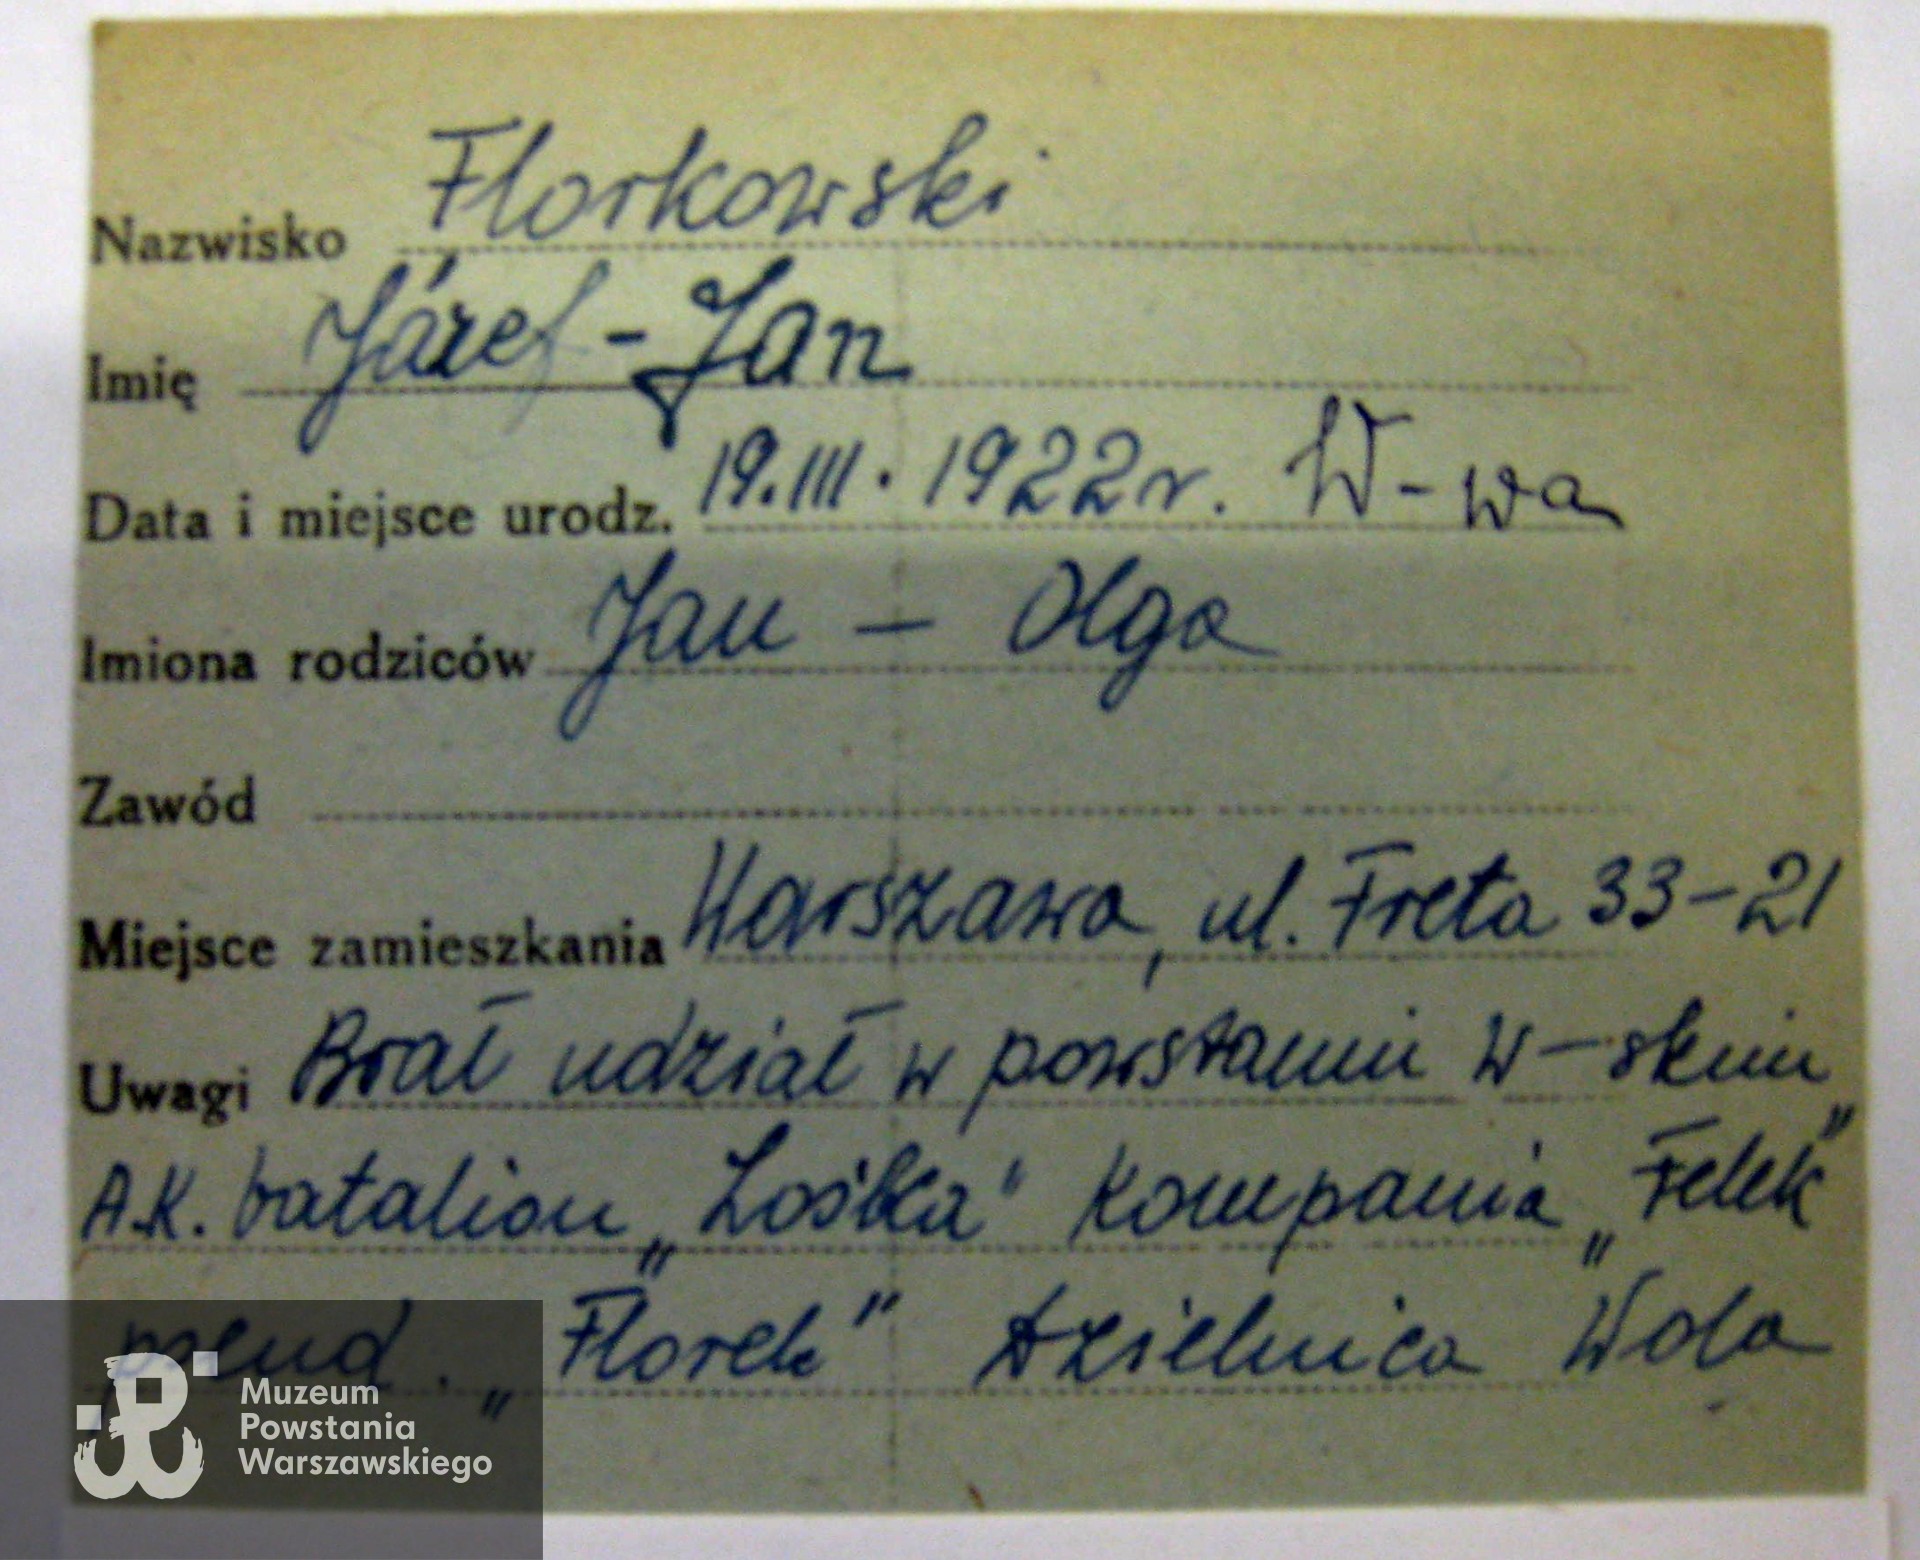 Nazwisko Florkowski
Imię Józef - Jan
Data i miejsce urodz. 19.III.1922r. W-wa
Imiona rodziców Jan — Olga
Zawód
Miejsce zamieszkania Warszawa, ul. Freta 33-21
Uwagi Brał udział w powstaniu W-skim
A.K. batalion „Zośka" kompania „Felek"
pseud. „Florek" dzielnica Wola
Muzeum
Powstania
Warszawskiego